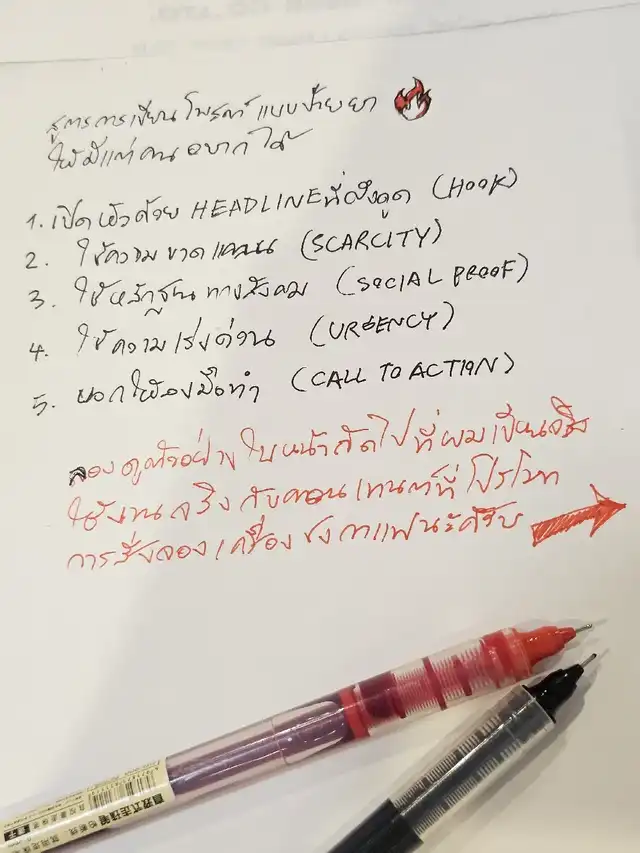 สูตรการเขียนโพสต์ แบบป้ายยา
ให้มีแต่คน อยากได้
1. เปิดหัวด้วย HEADLINE ที่ดึงดูด (HOOK)
2. ใช้ความขาดแคลน (SCARCITY)
3. ใช้หลักฐานทางสังคม (SOCIAL PROOF)
4. ใช้ความเร่งด่วน (URGENCY)
5. บอกให้ลงมือทำ (CALL TO ACTION)
ลองดูตัวอย่างในหน้าถัดไปที่ผมเขียนจริง
ใช้งานจริงกับคอนเทนต์ที่โปรโมท
การสั่งจองเครื่องชงกาแฟนะครับ